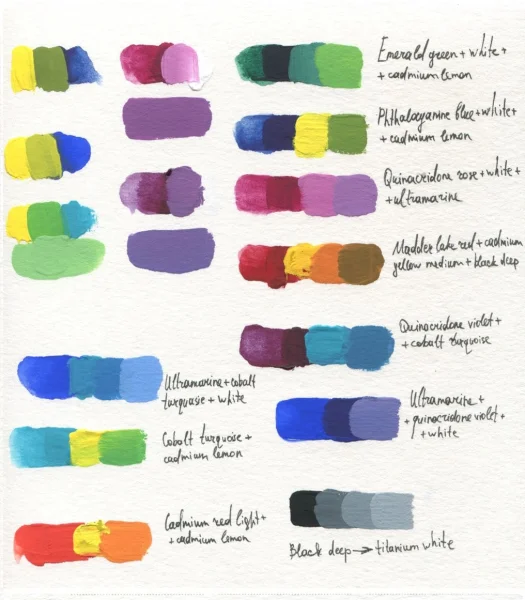 Emerald green + white +
+ cadmium lemon
Phthalocyanine blue + white +
+ cadmium lemon
Quinacridone rose + white +
+ ultramarine
Madder lake red + cadmium
yellow medium + black deep
Quinacridone violet +
+ cobalt turquoise
Ultramarine + cobalt
turquoise + white
Ultramarine +
+ quinacridone violet +
+ white
Cobalt turquoise +
cadmium lemon
Cadmium red light +
+ cadmium lemon
Black deep → titanium white